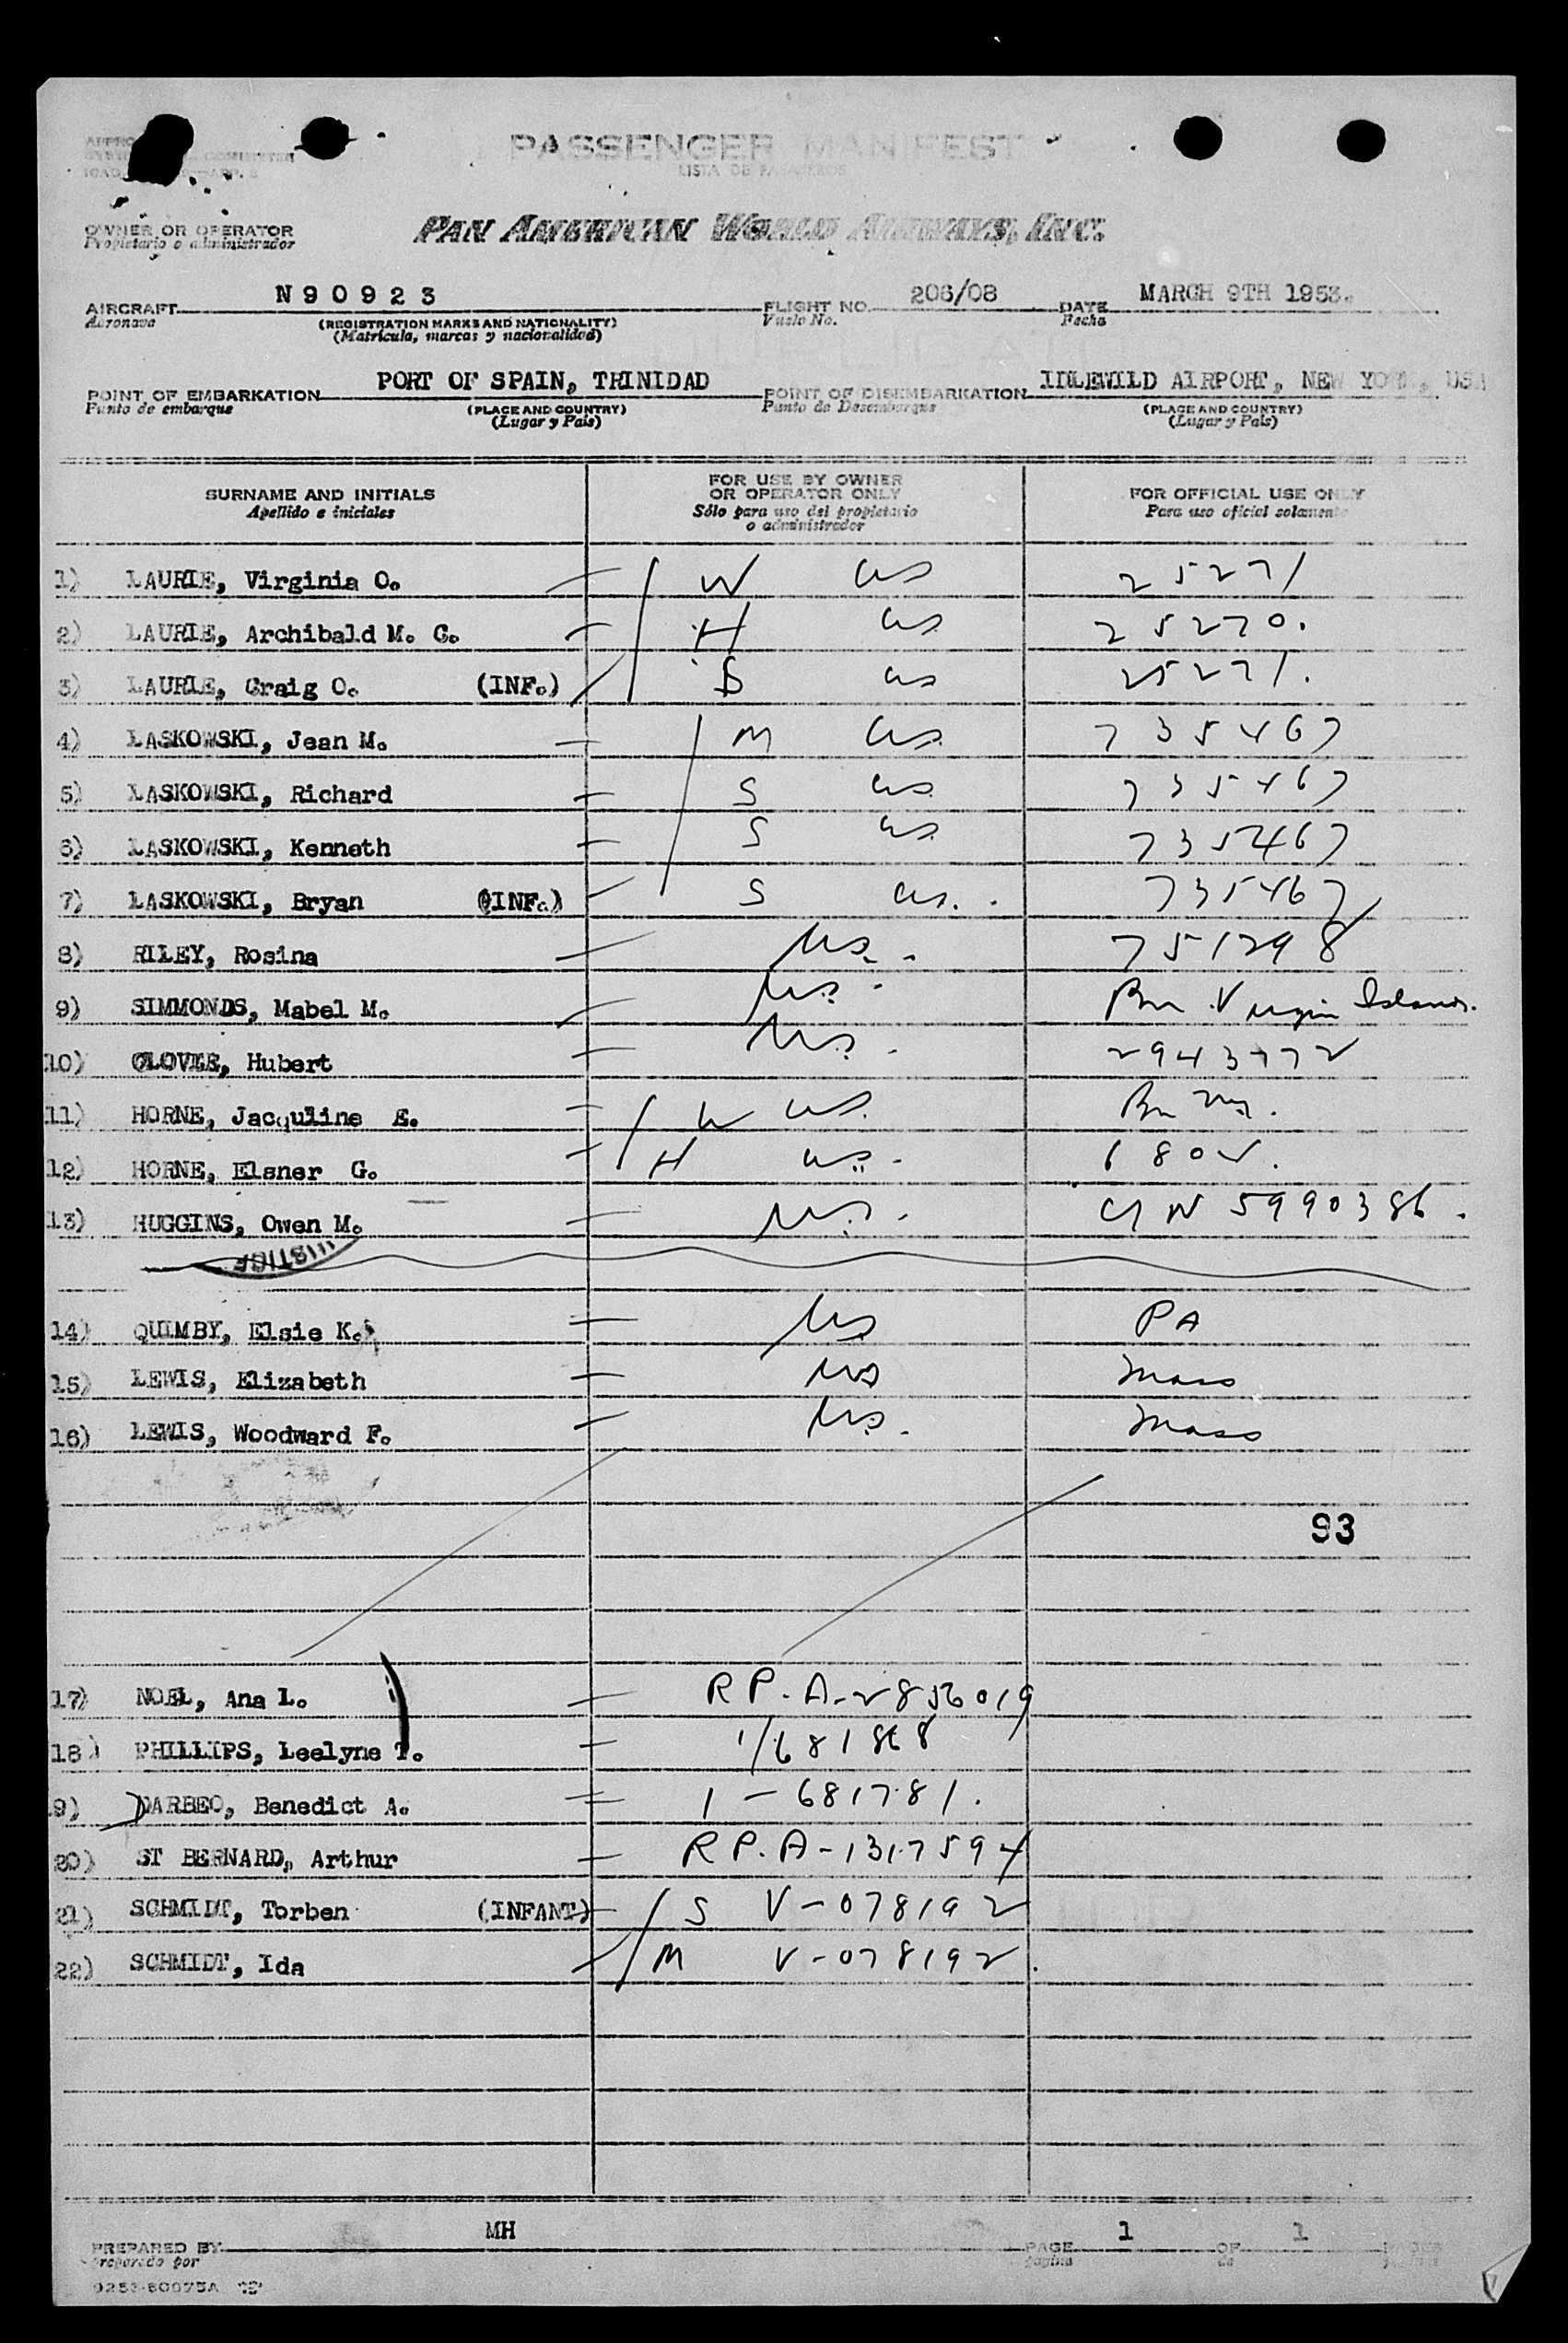 PASSENGER MANIFEST
LISTA DE PASAJEROS
OWNER OR OPERATOR
Propietario o administrador
PAN AMERICAN WORLD AIRWAYS, INC.
AIRCRAFT N90923 FLIGHT NO. 206/08 DATE MARCH 9TH 1953.
Aeronave (REGISTRATION MARKS AND NATIONALITY) Vuelo No. Fecha
(Matrícula, marcas y nacionalidad)
POINT OF EMBARKATION PORT OF SPAIN, TRINIDAD POINT OF DISEMBARKATION IDLEWILD AIRPORT, NEW YORK, USA
Punto de embarque (PLACE AND COUNTRY) Punto de Desembarque (PLACE AND COUNTRY)
(Lugar y País) (Lugar y País)
SURNAME AND INITIALS FOR USE BY OWNER OR OPERATOR ONLY FOR OFFICIAL USE ONLY
Apellido e iniciales Sólo para uso del propietario o administrador Para uso oficial solamente
1) LAURIE, Virginia O. W US 25271
2) LAURIE, Archibald M. G. H US 25270.
3) LAURIE, Craig O. (INF.) S US 25271.
4) LASKOWSKI, Jean M. M US. 735467
5) LASKOWSKI, Richard S US. 735467
6) LASKOWSKI, Kenneth S US. 735467
7) LASKOWSKI, Bryan (INF.) S US. 735467
8) RILEY, Rosina US. 751298
9) SIMMONDS, Mabel M. US. Bn Virgin Islands.
10) GLOVER, Hubert US. 2943772
11) HORNE, Jacquline E. W US. Bn NY.
12) HORNE, Elsner G. H US. 6802.
13) HUGGINS, Owen M. US. CN 5990386.
JUSTICE
14) QUIMBY, Elsie K. US PA
15) LEWIS, Elizabeth US Mass
16) LEWIS, Woodward F. US. Mass
93
17) NOEL, Ana L. R P. A-2856019
18) PHILLIPS, Leelyne T. 1/681868
19) DARBEO, Benedict A. 1-681781.
20) ST BERNARD, Arthur R P. A-1317594
21) SCHMIDT, Torben (INFANT) S V-078192
22) SCHMIDT, Ida M V-078192.
PREPARED BY MH PAGE 1 OF 1 PAGES
Preparado por página de